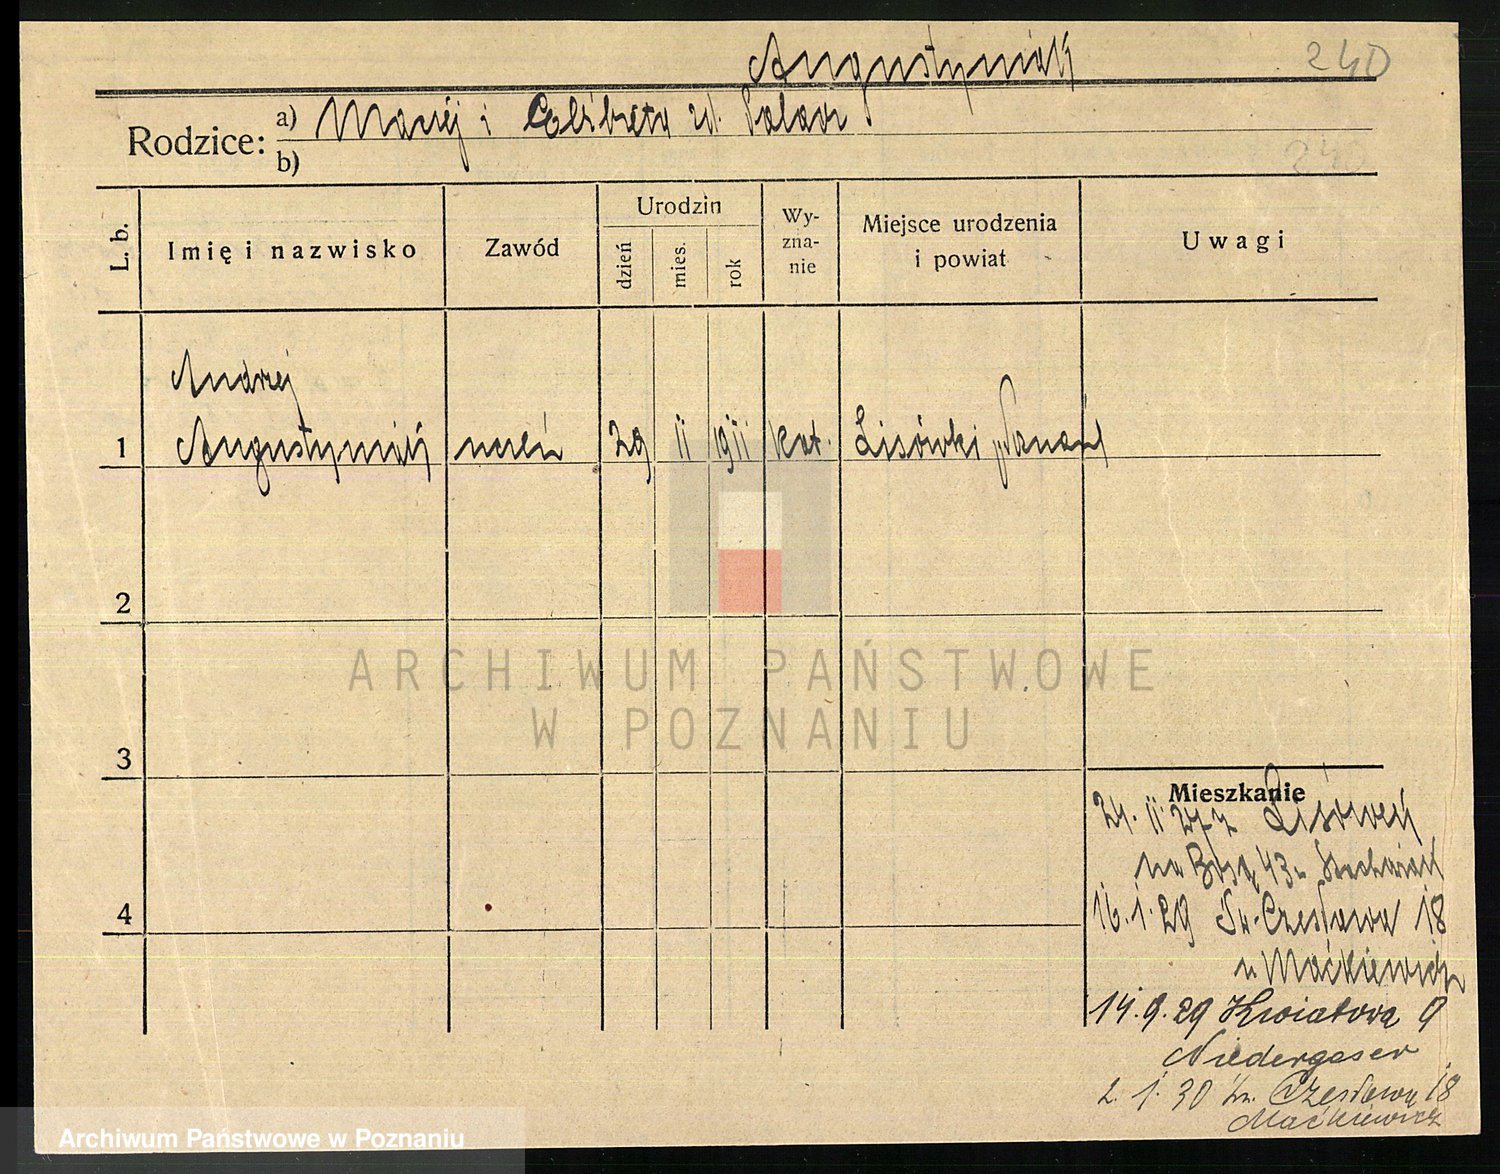 Augustyniak 240
Rodzice: a) Maciej i Elżbieta zd.
b) 240
L. b. Imię i nazwisko Zawód Urodzin dzień mies. rok Wyznanie Miejsce urodzenia i powiat Uwagi
Andrzej
1 Augustyniak uczeń 29 11 1911 kat. Lisówki p. Poznań
2
ARCHIWUM PAŃSTWOWE
W POZNANIU
3
Mieszkanie
24. 11. 27 z Lisówek
na 43 u Stachowiak
4
16. 1. 29 Św. Czesława 18
u Maćkiewicz
14. 9. 29 Kwiatowa 9
Niedergeser
2. 1. 30 Św. Czesława 18
Maćkiewicz
Archiwum Państwowe w Poznaniu